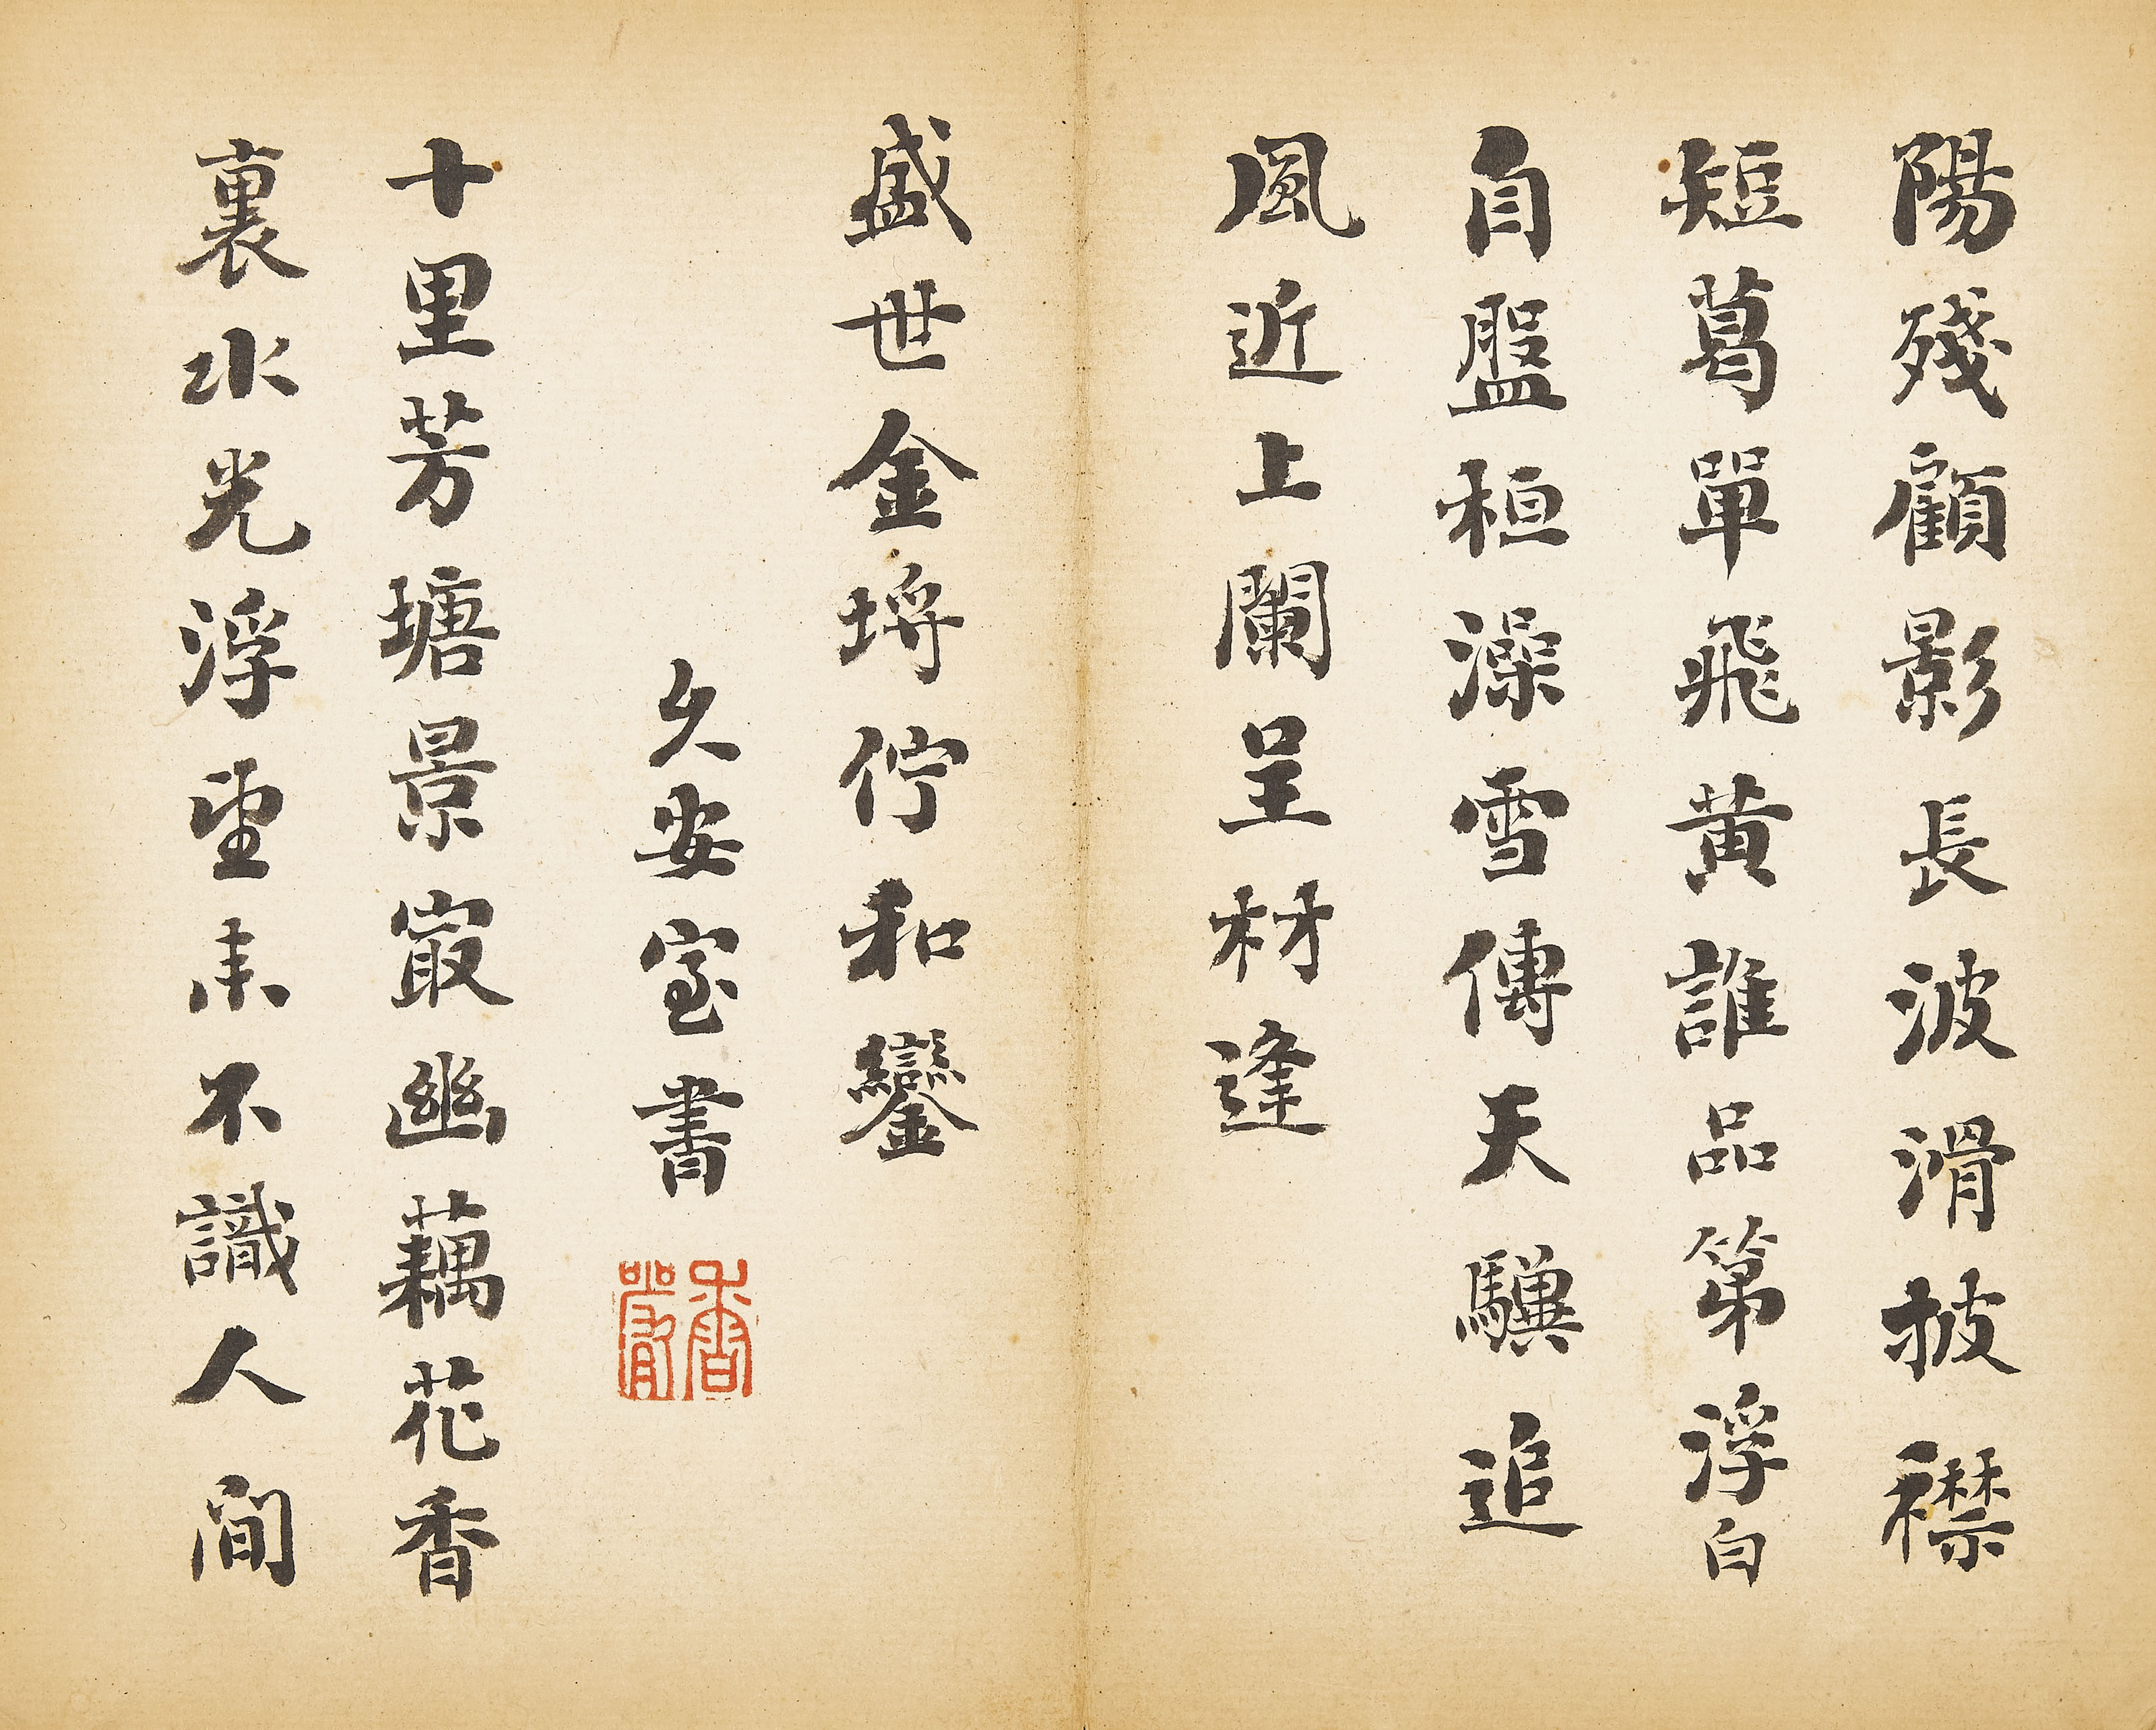 陽殘顧影長波滑披襟
短葛單飛黃誰品第浮白
自盤桓澡雪傳天驥追
風近上闌呈材逢
盛世金埒佇和鑾
久安室書
十里芳塘景㝡幽藕花香
裏水光浮望未不識人間